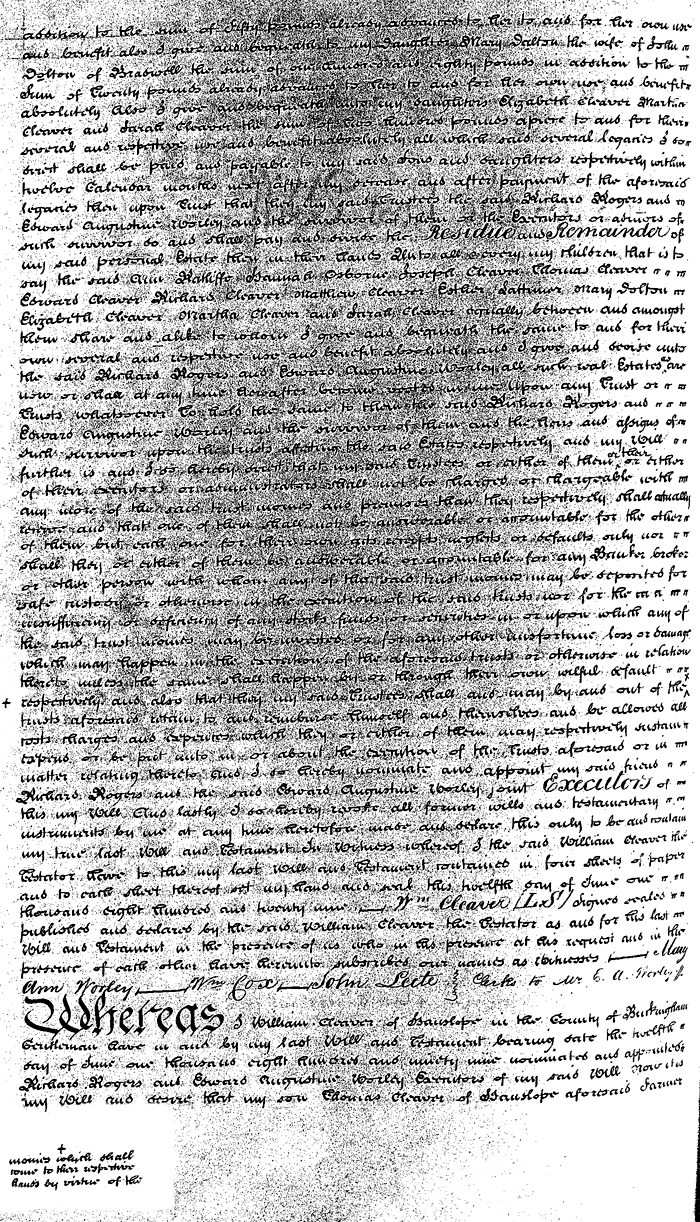 addition to the sum of Fifty pounds already advanced to her to and for her own use
and benefit also I give and bequeath to my Daughter Mary Dolton the wife of John
Dolton of Bradwell the sum of one hundred and eighty pounds in addition to the
sum of Twenty pounds already advanced to her to and for her own use and benefit
absolutely Also I give and bequeath unto my daughters Elizabeth Cleaver Martha
Cleaver and Sarah Cleaver the sum of two hundred pounds apiece to and for their
several and respective use and benefit absolutely all which said several legacies I do
direct shall be paid and payable to my said Sons and daughters respectively within
twelve Calendar months next after my decease and after payment of the aforesaid
legacies then upon Trust that they my said Trustees the said Richard Rogers and
Edward Augustine Worley and the survivor of them or the Executors or admors of
such survivor do and shall pay and divide the Residue and Remainder of
my said personal Estate then in their hands Unto all & every my children that is to
say the said Ann Ratliffe Hannah Osborne Joseph Cleaver Thomas Cleaver
Edward Cleaver Richard Cleaver Matthew Cleaver Esther Lattimer Mary Dolton
Elizabeth Cleaver Martha Cleaver and Sarah Cleaver equally between and amongst
them share and alike to whom I give and bequeath the same to and for their
own several and respective use and benefit absolutely and I give and devise unto
the said Richard Rogers and Edward Augustine Worley all such real Estates as are
now or shall at any time hereafter become vested in me upon any Trust or
Trusts whatsoever To hold the same to them the said Richard Rogers and
Edward Augustine Worley and the survivor of them and the heirs and assigns of
such survivor upon the trusts affecting the said Estates respectively and my Will
further is and I do hereby direct that my said Trustees or either of them or their or either
of their executors or administrators shall not be charged or chargeable with
any more of the said trust monies and premises than they respectively shall actually
receive and that one of them shall not be answerable or accountable for the other
of them but each one for their own acts receipts neglects or defaults only nor
shall they or either of them be answerable or accountable for any Banker broker
or other person with whom any of the said trust monies may be deposited for
safe custody or otherwise in the execution of the said trusts nor for the
insufficiency or deficiency of any stocks funds or securities in or upon which any of
the said trust monies may be invested or for any other misfortune loss or damage
which may happen in the execution of the aforesaid trusts or otherwise in relation
thereto unless the same shall happen by or through their own wilful default
+ respectively and also that they my said Trustees shall and may by and out of the
trusts aforesaid retain to and reimburse himself and themselves and be allowed all
costs charges and expences which they or either of them may respectively sustain
expend or be put unto in or about the execution of the trusts aforesaid or in
matter relating thereto And I do hereby nominate and appoint my said friend
Richard Rogers and the said Edward Augustine Worley joint Executors of
this my Will And lastly I do hereby revoke all former wills and testamentary
instruments by me at any time heretofore made and declare this only to be and contain
my true last Will and Testament In Witness whereof I the said William Cleaver the
Testator have to this my last Will and Testament contained in four sheets of paper
and to each sheet thereof set my hand and seal this twelfth day of June one
thousand eight hundred and twenty nine — Wm Cleaver (L.S) Signed sealed
published and declared by the said William Cleaver the Testator as and for his last
Will and Testament in the presence of us who in his presence at his request and in the
presence of each other have hereunto subscribed our names as witnesses — Mary
Ann Worley — Wm Cox — John Leete Clerks to Mr E. A. Worley
Whereas I William Cleaver of Hanslope in the County of Buckingham
Gentleman have in and by my last Will and Testament bearing date the twelfth
day of June one thousand eight hundred and ninety nine nominated and appointed
Richard Rogers and Edward Augustine Worley Executors of my said Will Now it is
my Will and desire that my son Thomas Cleaver of Hanslope aforesaid Farmer
+
monies which shall
come to their respective
hands by virtue of the